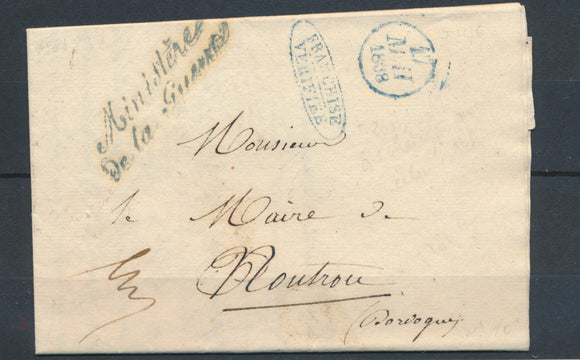 Ministère
de la Guerre
FRANCHISE
VERIFIEE
17
MAI
1838
Monsieur
le Maire de
Nontron
(Dordogne)